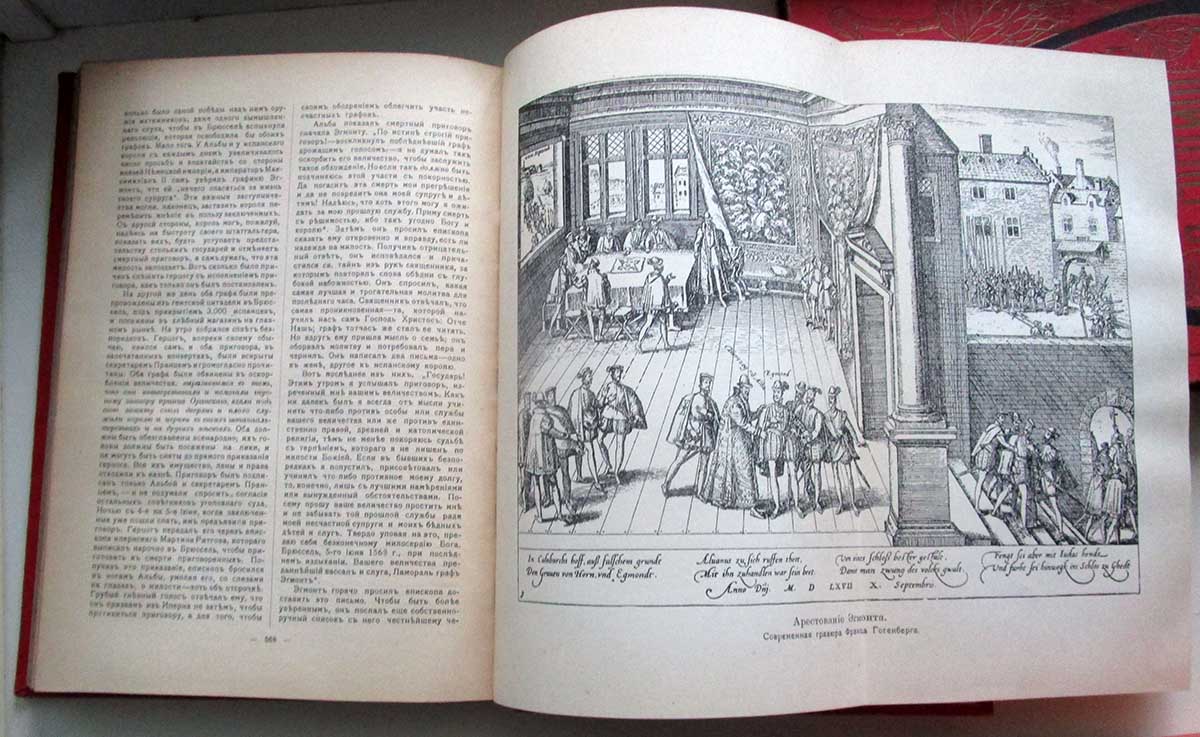 волько было одной побѣды надъ нимъ ору-
жія мятежниковъ, даже одного вымышлен-
наго слуха, чтобы въ Брюсселѣ вспыхнула
революція, которая освободила бы обоихъ
графовъ. Мало того. У Альбы и у испанскаго
короля съ каждымъ днемъ увеличивалось
число просьбъ и ходатайствъ со стороны
князей Нѣмецкой имперіи, а императоръ Мак-
симиліанъ II самъ увѣрялъ графиню Эг-
монтъ, что ей „нечего опасаться за жизнь
своего супруга“. Эти важныя заступниче-
ства могли, наконецъ, заставить короля пе-
ремѣнить мнѣніе въ пользу заключенныхъ.
Съ другой стороны, король могъ, пожалуй,
надѣясь на быстроту своего штатгальтера,
показать видъ, будто уступаетъ предста-
тельству столькихъ государей и отмѣняетъ
смертный приговоръ, а самъ думать, что эта
милость запоздаетъ. Вотъ сколько было при-
чинъ спѣшить герцогу съ исполненіемъ при-
говора, какъ только онъ былъ постановленъ.
На другой же день оба графа были пре-
провождены изъ гентской цитадели въ Брюс-
сель, подъ прикрытіемъ 3,000 испанцевъ,
и посажены въ хлѣбный магазинъ на глав-
номъ рынкѣ. На утро собрался совѣтъ без-
порядковъ. Герцогъ, вопреки своему обы-
чаю, явился самъ, и оба приговора, въ
запечатанныхъ конвертахъ, были вскрыты
секретаремъ Пранцемъ и громогласно прочи-
таны. Оба графа были обвинены въ оскорб-
леніи величества,
Оба дол-
жны быть обезглавлены всенародно; ихъ го-
ловы должны быть посажены на пики, и
не могутъ быть сняты до прямого приказанія
герцога. Все ихъ имущество, лены и права
отходили къ казнѣ. Приговоръ былъ подпи-
санъ только Альбой и секретаремъ Пран-
цемъ,—и не подумали спросить, согласія
остальныхъ совѣтниковъ уголовнаго суда.
Ночью съ 4-е на 5-е іюня, когда заключен-
ные уже пошли спать, имъ предъявили при-
говоръ. Герцогъ передалъ его черезъ епис-
копа ипернскаго Мартина Ритгова, котораго
выписалъ нарочно въ Брюссель, чтобы приго-
товить къ смерти приговоренныхъ. Получивъ
это приказаніе, епископъ бросился
къ ногамъ Альбы, умолял его, со слезами
на глазахъ, о милости—хоть объ отсрочкѣ.
Грубый гнѣвный голосъ отвѣчалъ ему, что
онъ призванъ изъ Иперна не затѣмъ, чтобы
противиться приговору, а для того, чтобы
— 568 —
своимъ ободреніемъ облегчить участь не-
счастныхъ графовъ.
Альба показалъ смертный приговоръ
сначала Эгмонту. „По истинѣ строгій при-
говоръ!—воскликнулъ поблѣднѣвшій графъ
дрожащимъ голосомъ—я не думалъ такъ
оскорбить его величество, чтобы заслужить
такое обхожденіе. Но если такъ должно быть
подчиняюсь этой участи съ покорностью.
Да погаситъ эта смерть мои прегрѣшенія
и да не повредитъ она моей супругѣ и дѣ-
тямъ! Надѣюсь, что хоть этого могу я ожи-
дать за мою прошлую службу. Приму смерть
съ рѣшимостью, ибо такъ угодно Богу и
королю“. Затѣмъ онъ просилъ епископа
сказать ему откровенно и вправду, есть ли
надежда на милость. Получивъ отрицатель-
ный отвѣтъ, онъ исповѣдался и прича-
стился св. тайнъ изъ рукъ священника, за
которымъ повторялъ слова обѣдни съ глу-
бокой набожностью. Онъ спросилъ, какая
самая лучшая и трогательная молитва для
послѣдняго часа. Священникъ отвѣчалъ, что
самая проникновенная—та, которой на-
училъ насъ самъ Господь Христосъ: Отче
Нашъ; графъ тотчасъ же сталъ ее читать.
Но вдругъ ему пришла мысль о семьѣ; онъ
оборвалъ молитву и потребовалъ пера и
чернилъ. Онъ написалъ два письма—одно
къ женѣ, другое къ испанскому королю.
Вотъ послѣднее изъ нихъ. „Государь!
Этимъ утромъ я услышалъ приговоръ, из-
реченный мнѣ вашимъ величествомъ. Какъ
ни далекъ былъ я всегда отъ мысли учи-
нить что-либо противъ особы или службы
вашего величества или же противъ един-
ственно правой, древней и католической
религіи, тѣмъ не менѣе покоряюсь судьбѣ
съ терпѣніемъ, котораго я не лишенъ по
милости Божіей. Если въ бывшихъ безпо-
рядкахъ я попустилъ, присовѣтовалъ или
учинилъ что либо противное моему долгу,
то, конечно, лишь съ лучшими намѣреніями
или вынужденный обстоятельствами. По-
сему прошу ваше величество простить мнѣ
и не забывать той прошлой службы ради
моей несчастной супруги и моихъ бѣдныхъ
дѣтей и слугъ. Твердо уповая на это, пре-
даю себя безконечному милосердію Бога.
Брюссель, 5-го іюня 1568 г., при послѣд-
немъ издыханіи. Вашего величества пре-
даннѣйшій вассалъ и слуга, Ламораль графъ
Эгмонтъ“.
Эгмонтъ горячо просилъ епископа до-
ставить это письмо. Чтобы быть болѣе
увѣреннымъ, онъ послалъ еще собственно-
ручный списокъ съ него честнѣйшему че-
Egmond
In Culeburchs hoff, auß falschem grunde
Den Grauen von Horn, vnd Egmondt.
Albanus zu sich ruffen thet,
Mit ihn zuhandlen war sein bet.
Anno Dnj. M. D LXVII X. Septembro.
Von eins schloß
Darin man zwung des volcks gwalt.
Fengt sei aber mit Iudas bonde,
Und furhe sei hinwegk ins Schlos zu Ghedt
Арестованіе Эгмонта.
Современная гравюра Франса Гогенберга.